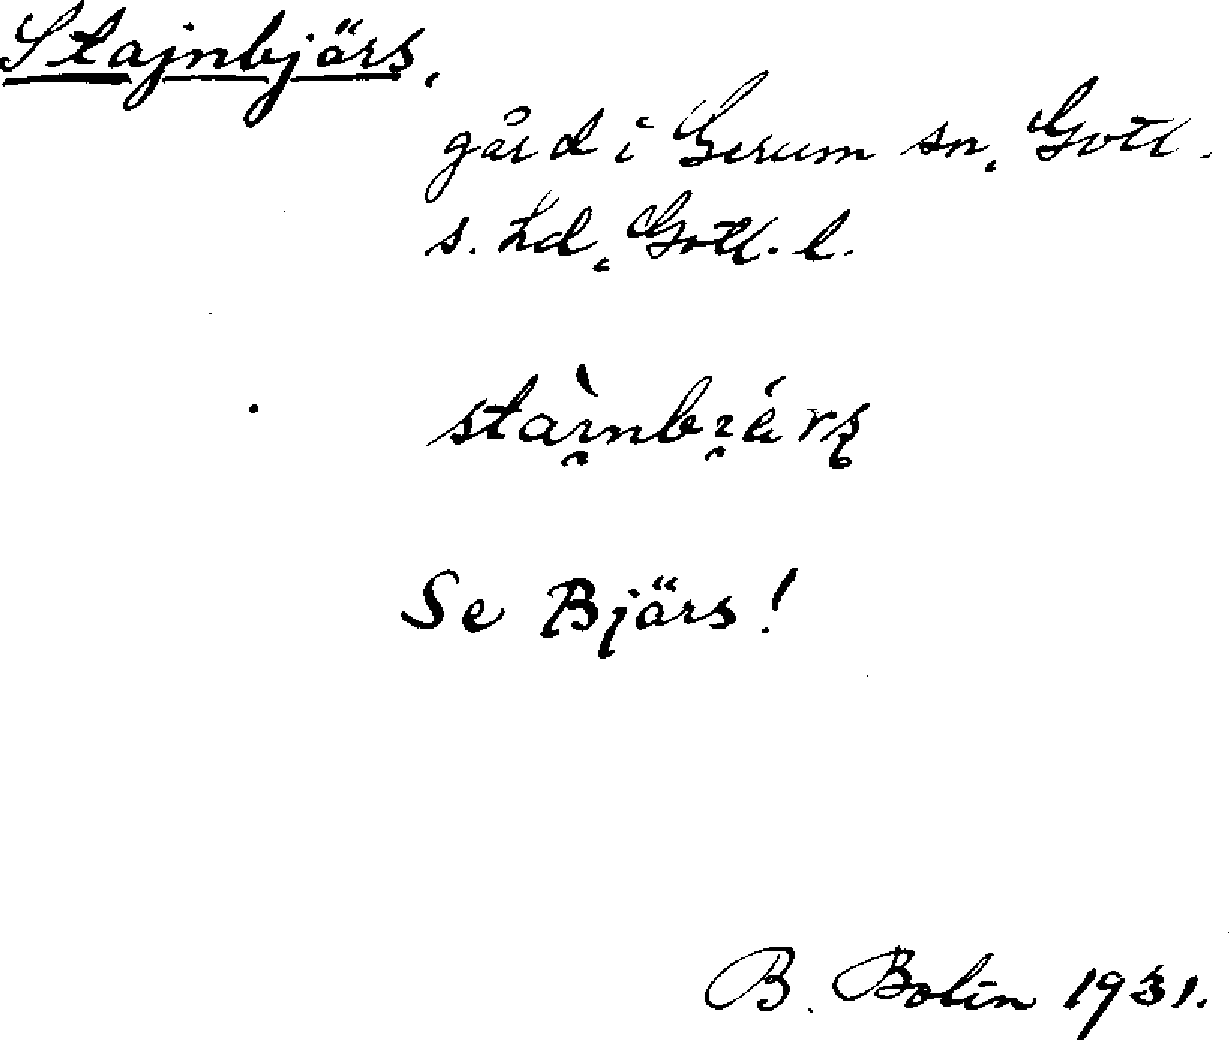 Stajnbjärs,
gård i Gerum sn, Gotl.
s. hd, Gotl. l.
staı̯̀nbı̯ä́rs
Se Bjärs!
B. Bolin 1931.